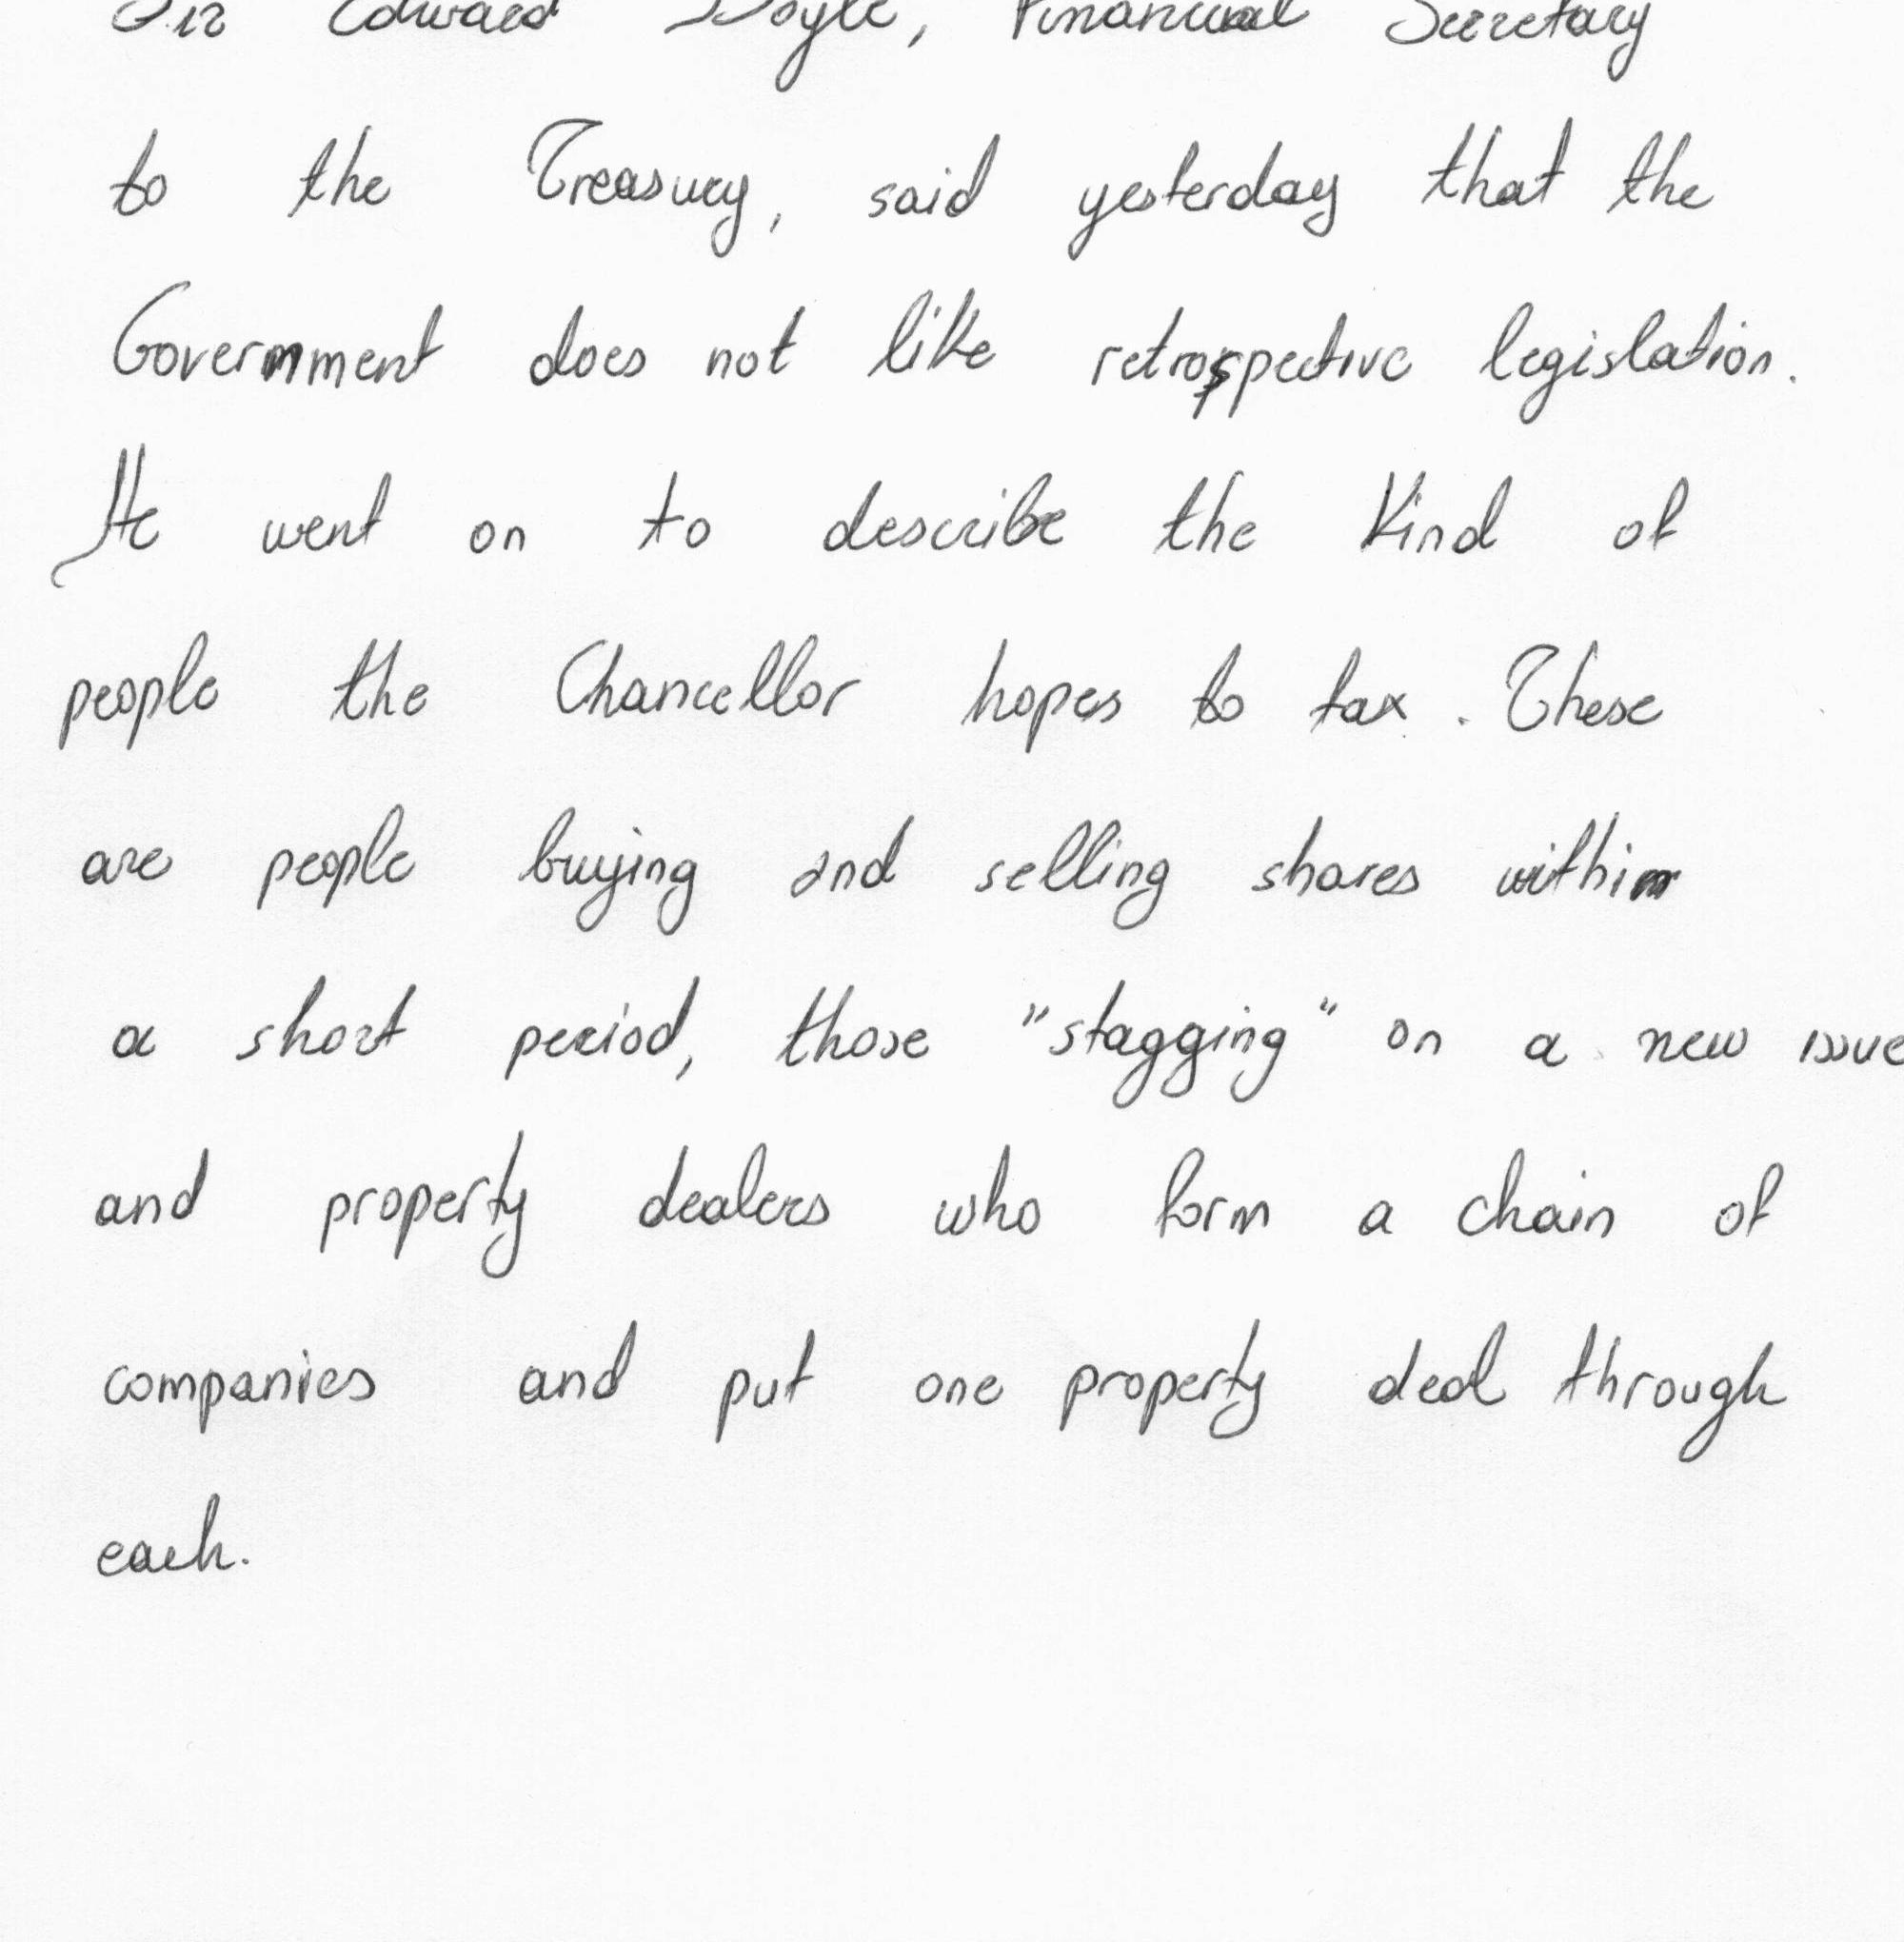 Sir Edward Doyle, Financial Secretary
to the Treasury, said yesterday that the
Government does not like retrospective legislation.
He went on to describe the Kind of
people the Chancellor hopes to tax. These
are people buying and selling shares within
a short period, those "stagging" on a new issue
and property dealers who form a chain of
companies and put one property deal through
each.